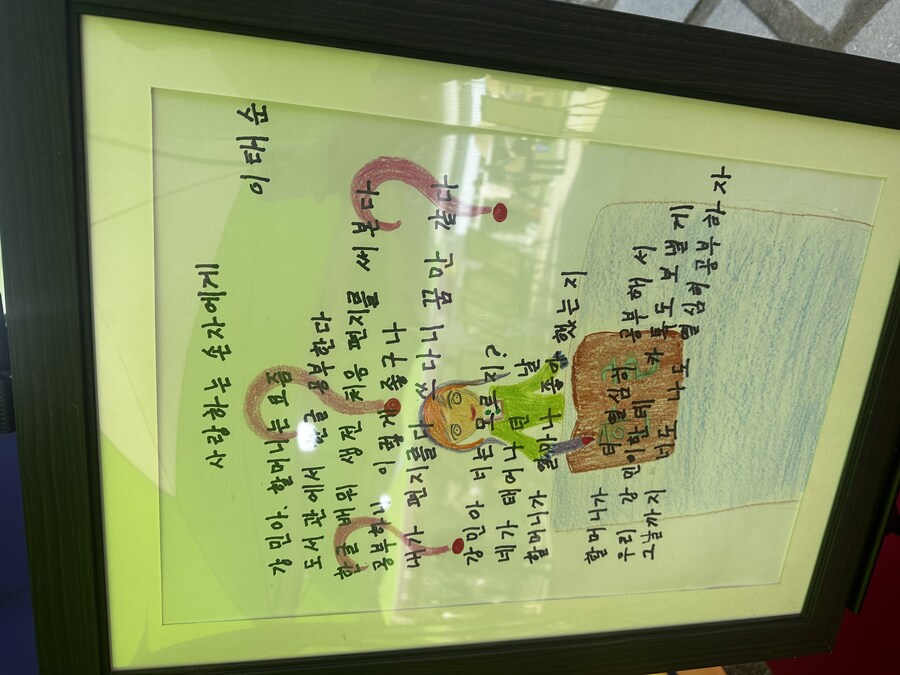 사랑하는 손자에게
이태순
강민아. 할머니는 요즘
도서관에서 한글 공부한다
한글 배워 생전 처음 편지를 써본다
공부하니 이렇게 좋구나
내가 편지를 다 쓰다니 꿈만 같다
강민아 너는 모르지?
네가 태어나던 날
할머니가 얼마나 좋아했는지
할머니가 더 열심히 공부해서
우리 강민이한테 카톡도 보낼게
그날까지 너도 나도 열심히 공부하자